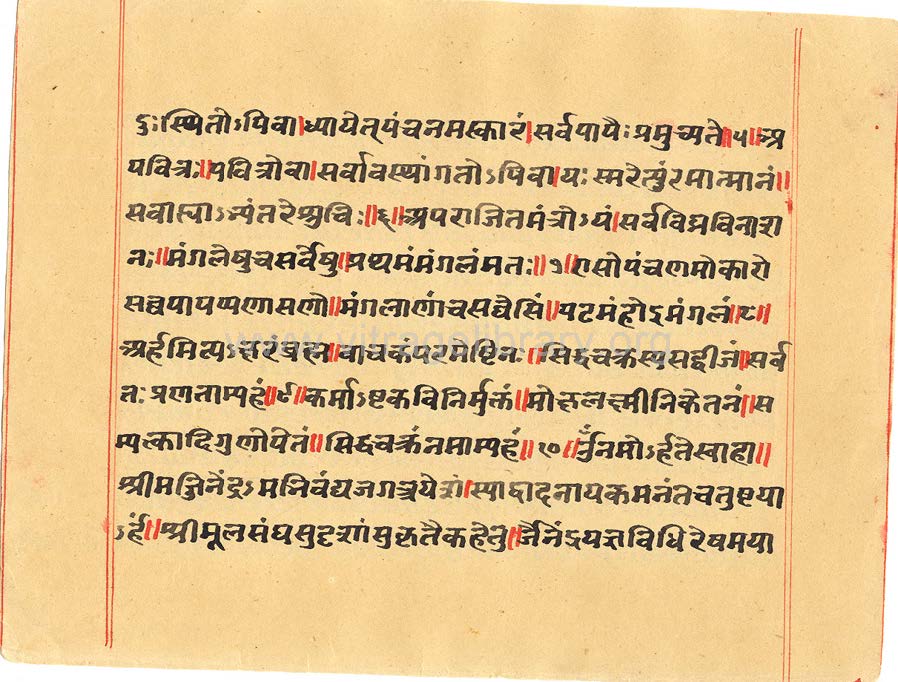 दुःस्थितोऽपिवा।ध्यायेत्पंचनमस्कारं।सर्वपापैःप्रमुच्यते॥५॥अ
पवित्रः॥पवित्रोवा।सर्वावस्थांगतोऽपिवा।यःस्मरेत्पुरमात्मानं॥
सवाह्याऽभ्यंतरेशुचिः॥६॥अपराजितमंत्रोऽयं।सर्वविघ्नविनाश
नः॥मंगलेषुचसर्वेषु।प्रथमंमंगलंमतः॥७॥एसोपंचणमोकारो
सव्वपापप्पणासणो॥मंगलाणंचसव्वेसिं॥पढमंहोइमंगलं॥८॥
अर्हमित्यऽक्षरंब्रह्म।वाचकंपरमेष्टिनः॥सिद्धचक्रस्यसद्बीजं॥सर्व
तःप्रणनाम्यहं॥९॥कर्माऽष्टकविनिर्मुक्तं॥मोक्षलक्ष्मीनिकेतनं॥स
म्यत्कादिगुणोपेतं॥सिद्धचक्रंनमाम्यहं॥१०॥ नमोऽर्हतेस्वाहा॥
श्रीमज्जिनेंद्रऽमभिवंद्यजगत्रयेशं।स्याद्वादनायकमनंतचतुष्टया
ऽर्हं॥श्रीमूलसंघसुदृशांसुकृतैकहेतु॥र्जैनेंद्रयज्ञविधिरेषमया
www.vitragelibrary.org